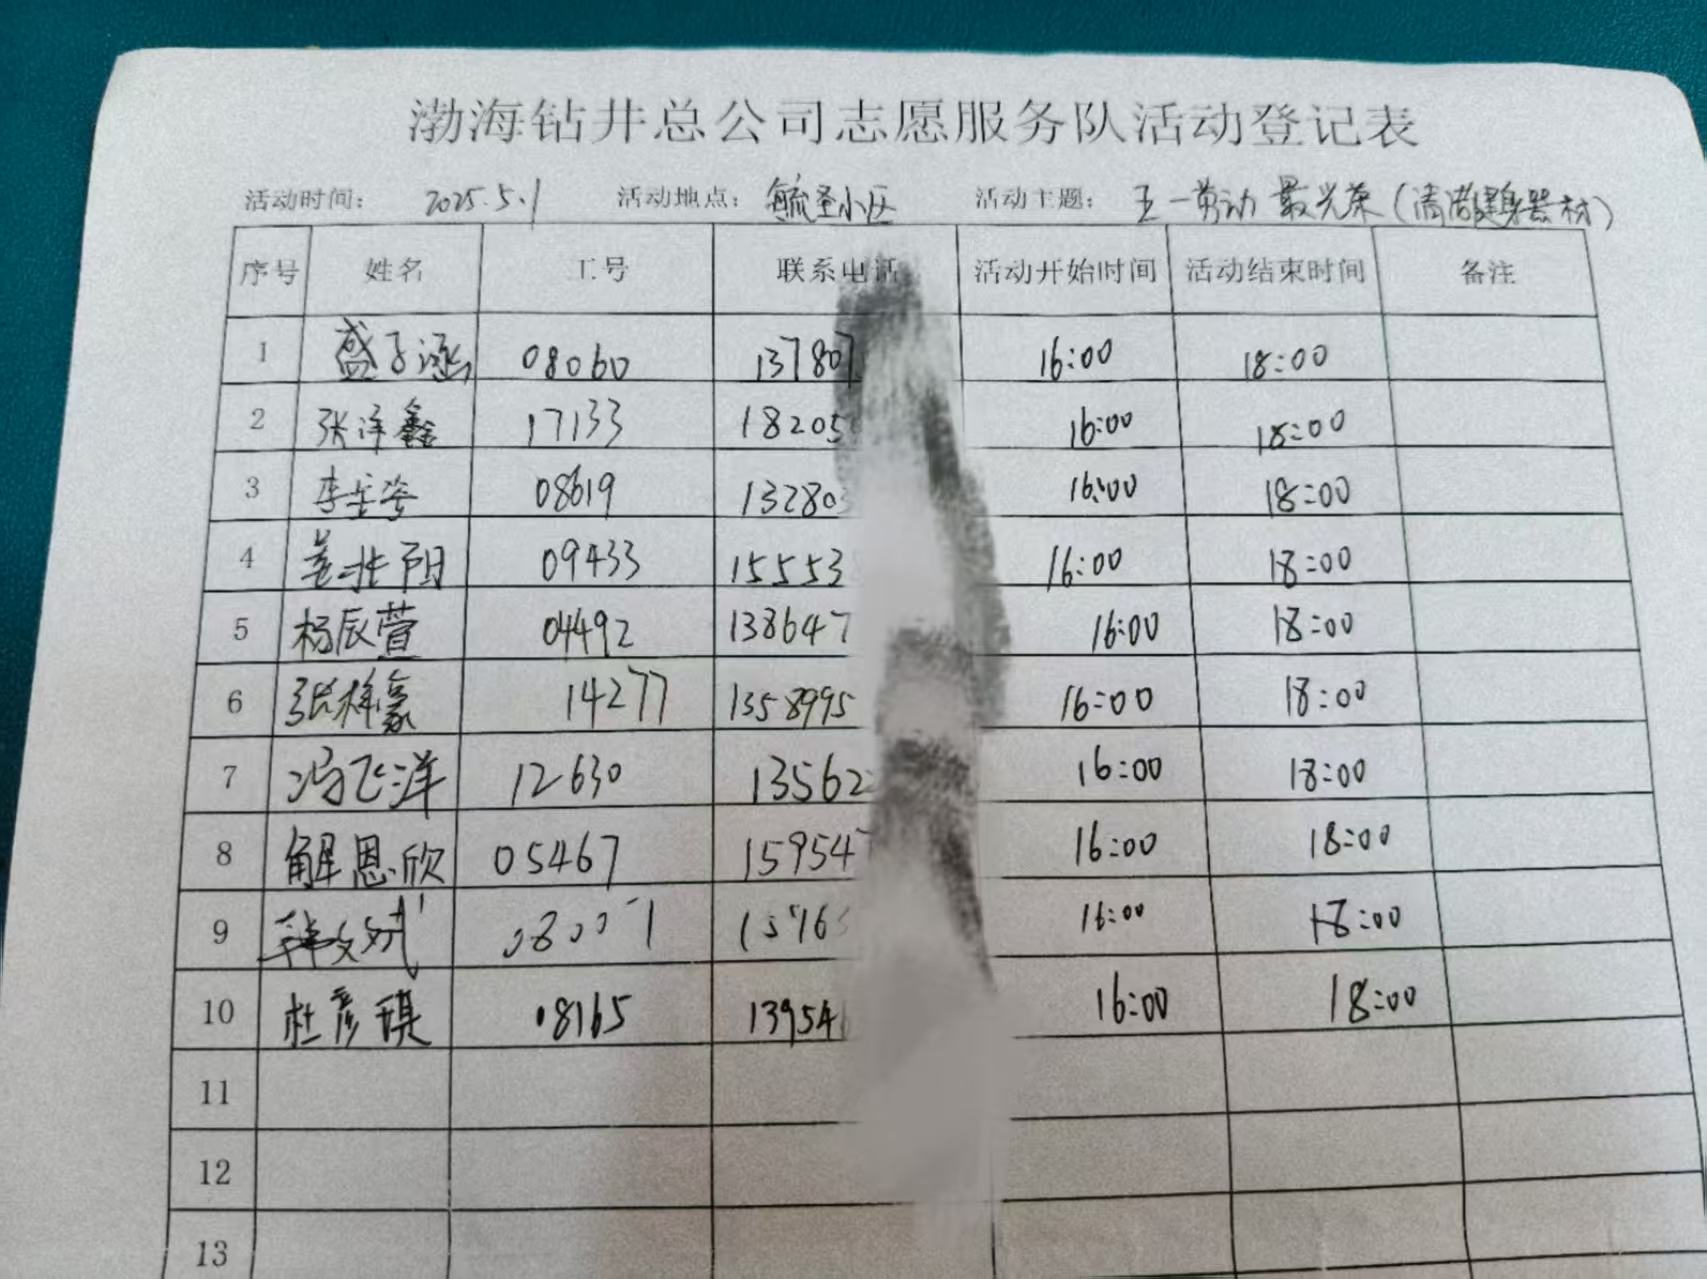 渤海钻井总公司志愿服务队活动登记表
活动时间： 2025.5.1 活动地点： 毓圣小区 活动主题： 五一劳动 最光荣（清潮健身器材）
序号 姓名 工号 联系电话 活动开始时间 活动结束时间 备注
1 盛子涵 08060 137807 16:00 18:00
2 张泽鑫 17133 18205 16:00 18:00
3 李 姿 08619 13280 16:00 18:00
4 姜 阳 09433 15553 16:00 18:00
5 杨辰萱 04492 138647 16:00 18:00
6 张梓豪 14277 1358995 16:00 18:00
7 冯飞洋 12630 13562 16:00 18:00
8 解恩欣 05467 15954 16:00 18:00
9 16:00 18:00
10 杜彦琪 08165 13954 16:00 18:00
11
12
13